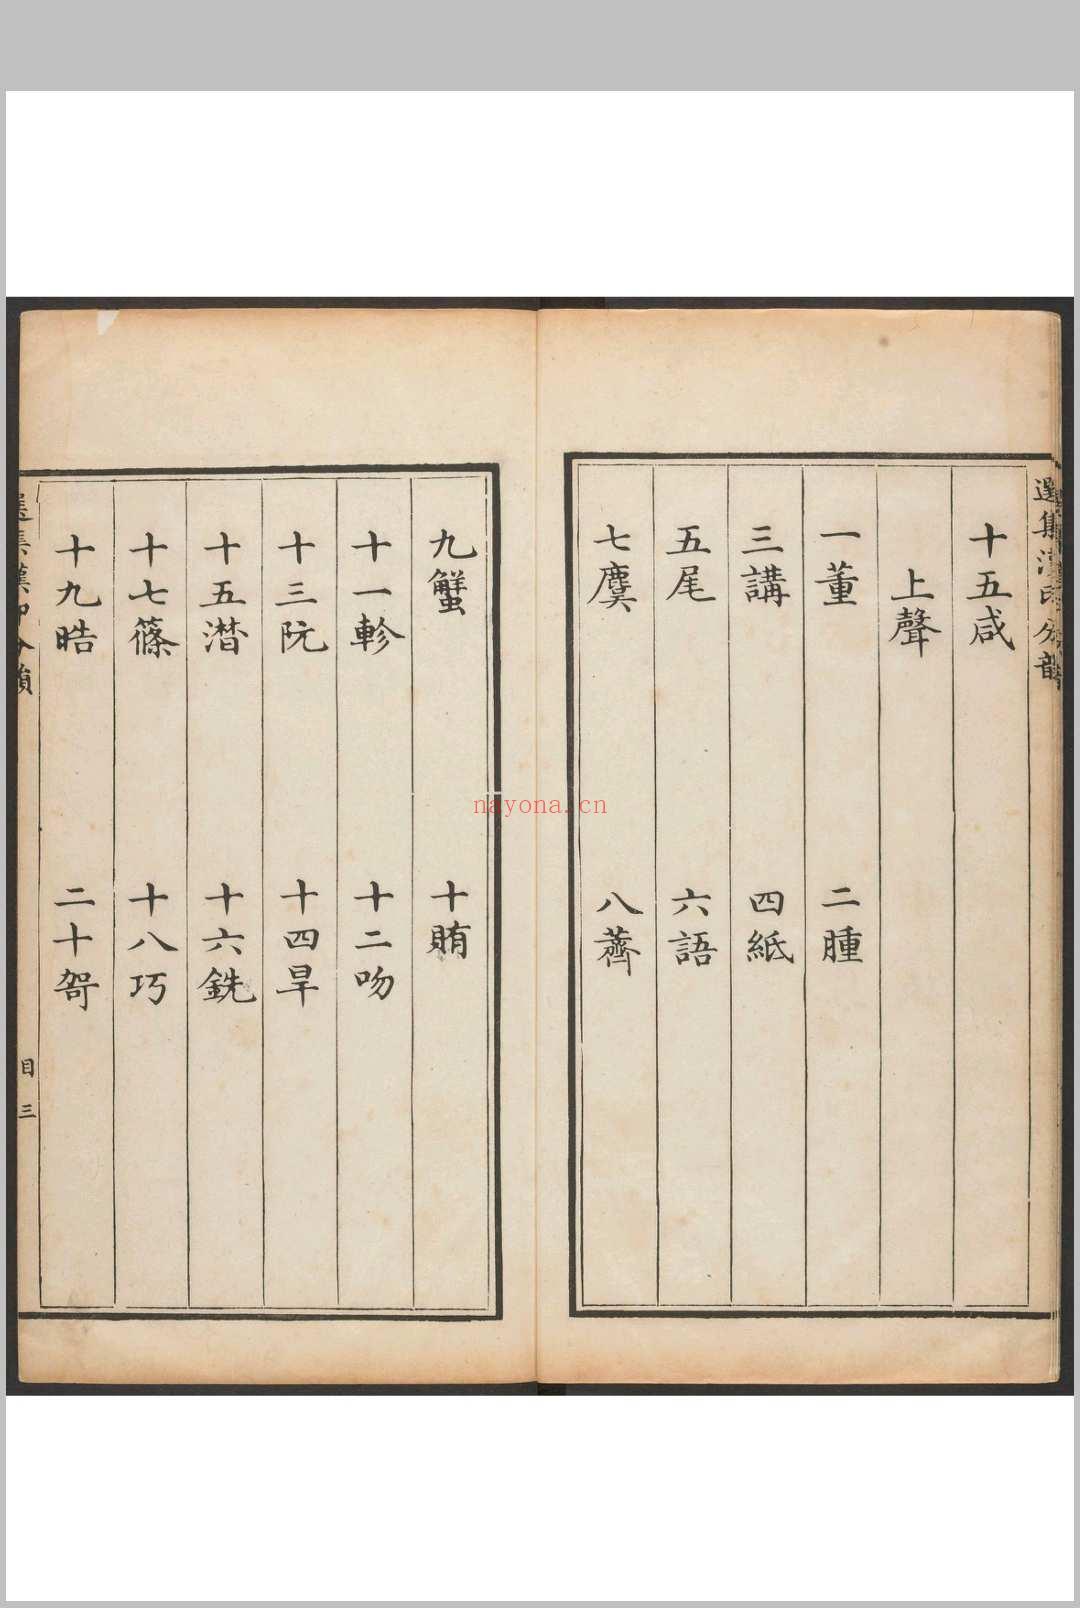 選集漢印分韻
十五咸
上聲
一董 二腫
三講 四紙
五尾 六語
七麌 八薺
九蟹 十賄
十一軫 十二吻
十三阮 十四旱
十五潸 十六銑
十七篠 十八巧
十九晧 二十哿
選集漢印分韻 目 三
nayona.cn